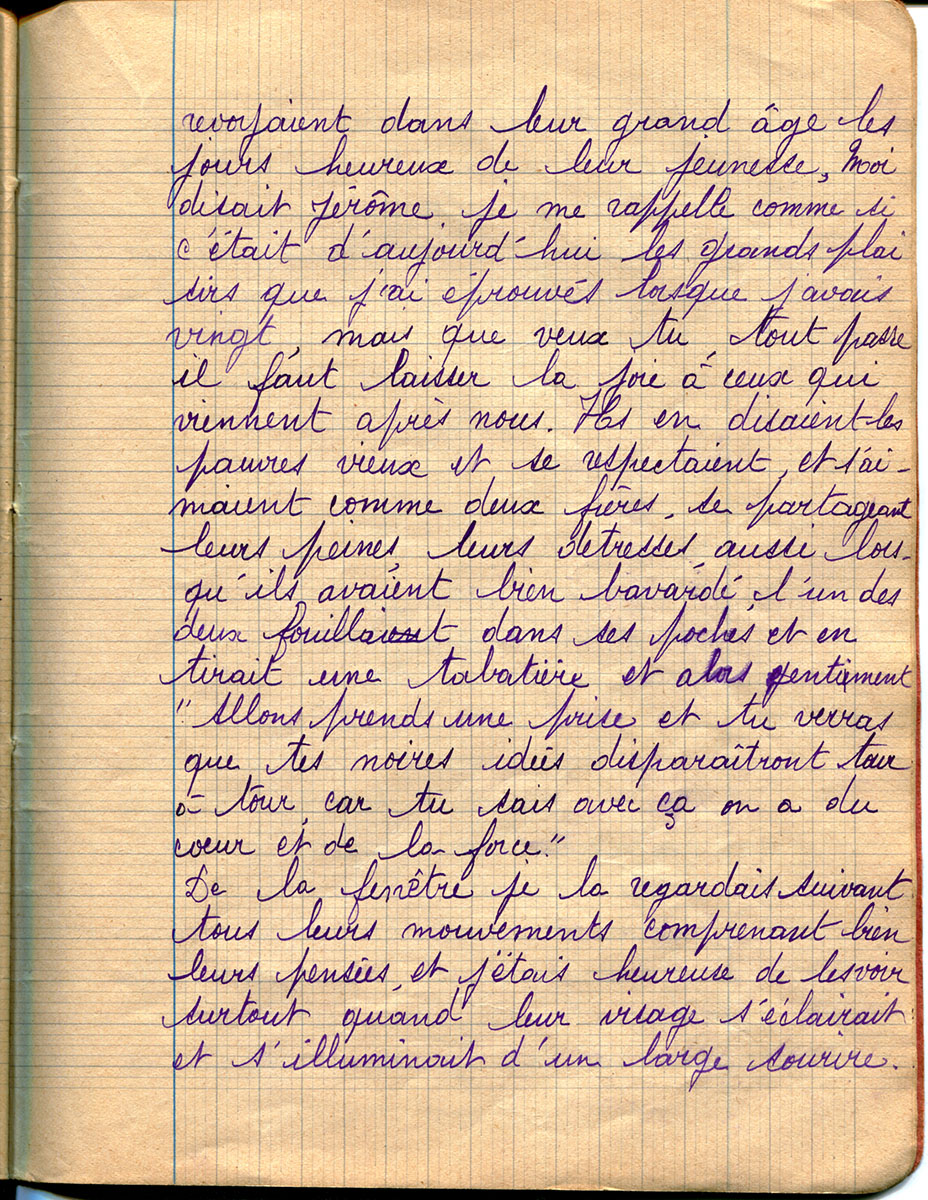 revoyaient dans leur grand âge les
jours heureux de leur jeunesse, Moi
disait Jérôme, je me rappelle comme si
c'était d'aujourd'hui les grands plai
sirs que j'ai éprouvés lorsque j'avais
vingt, mais que veux tu tout passe
il faut laisser la joie à ceux qui
viennent après nous. Ils en disaient les
pauvres vieux et se respectaient, et s'ai-
maient comme deux frères, se partageant
leurs peines, leurs détresses, aussi lors-
qu'ils avaient bien bavardé, l'un des
deux fouillait dans ses poches et en
tirait une tabatière et alors gentiment
"Allons prends une prise et tu verras
que tes noires idées disparaîtront tour
à tour, car tu sais avec ça on a du
cœur et de la force."
De la fenêtre je la regardais suivant
tous leurs mouvements comprenant bien
leurs pensées, et j'étais heureuse de les voir
surtout quand leur visage s'éclairait
et s'illuminait d'un large sourire.